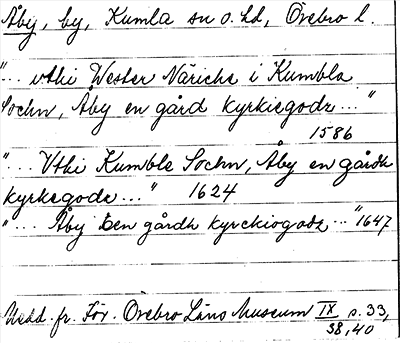 Åby, by, Kumla sn o. hd, Örebro l.
"... vthi Wester Näricke i Kumbla
Sochn, Åby en gård kyrkiegodz ..."
1586
"... Vthi Kumble Sochn, Åby en gårdh
kyrkegodz ..." 1624
"... Åby Een gårdh kyrckiogodz ..." 1647
Medd. fr. För. Örebro Läns Museum IX s. 33,
38, 40